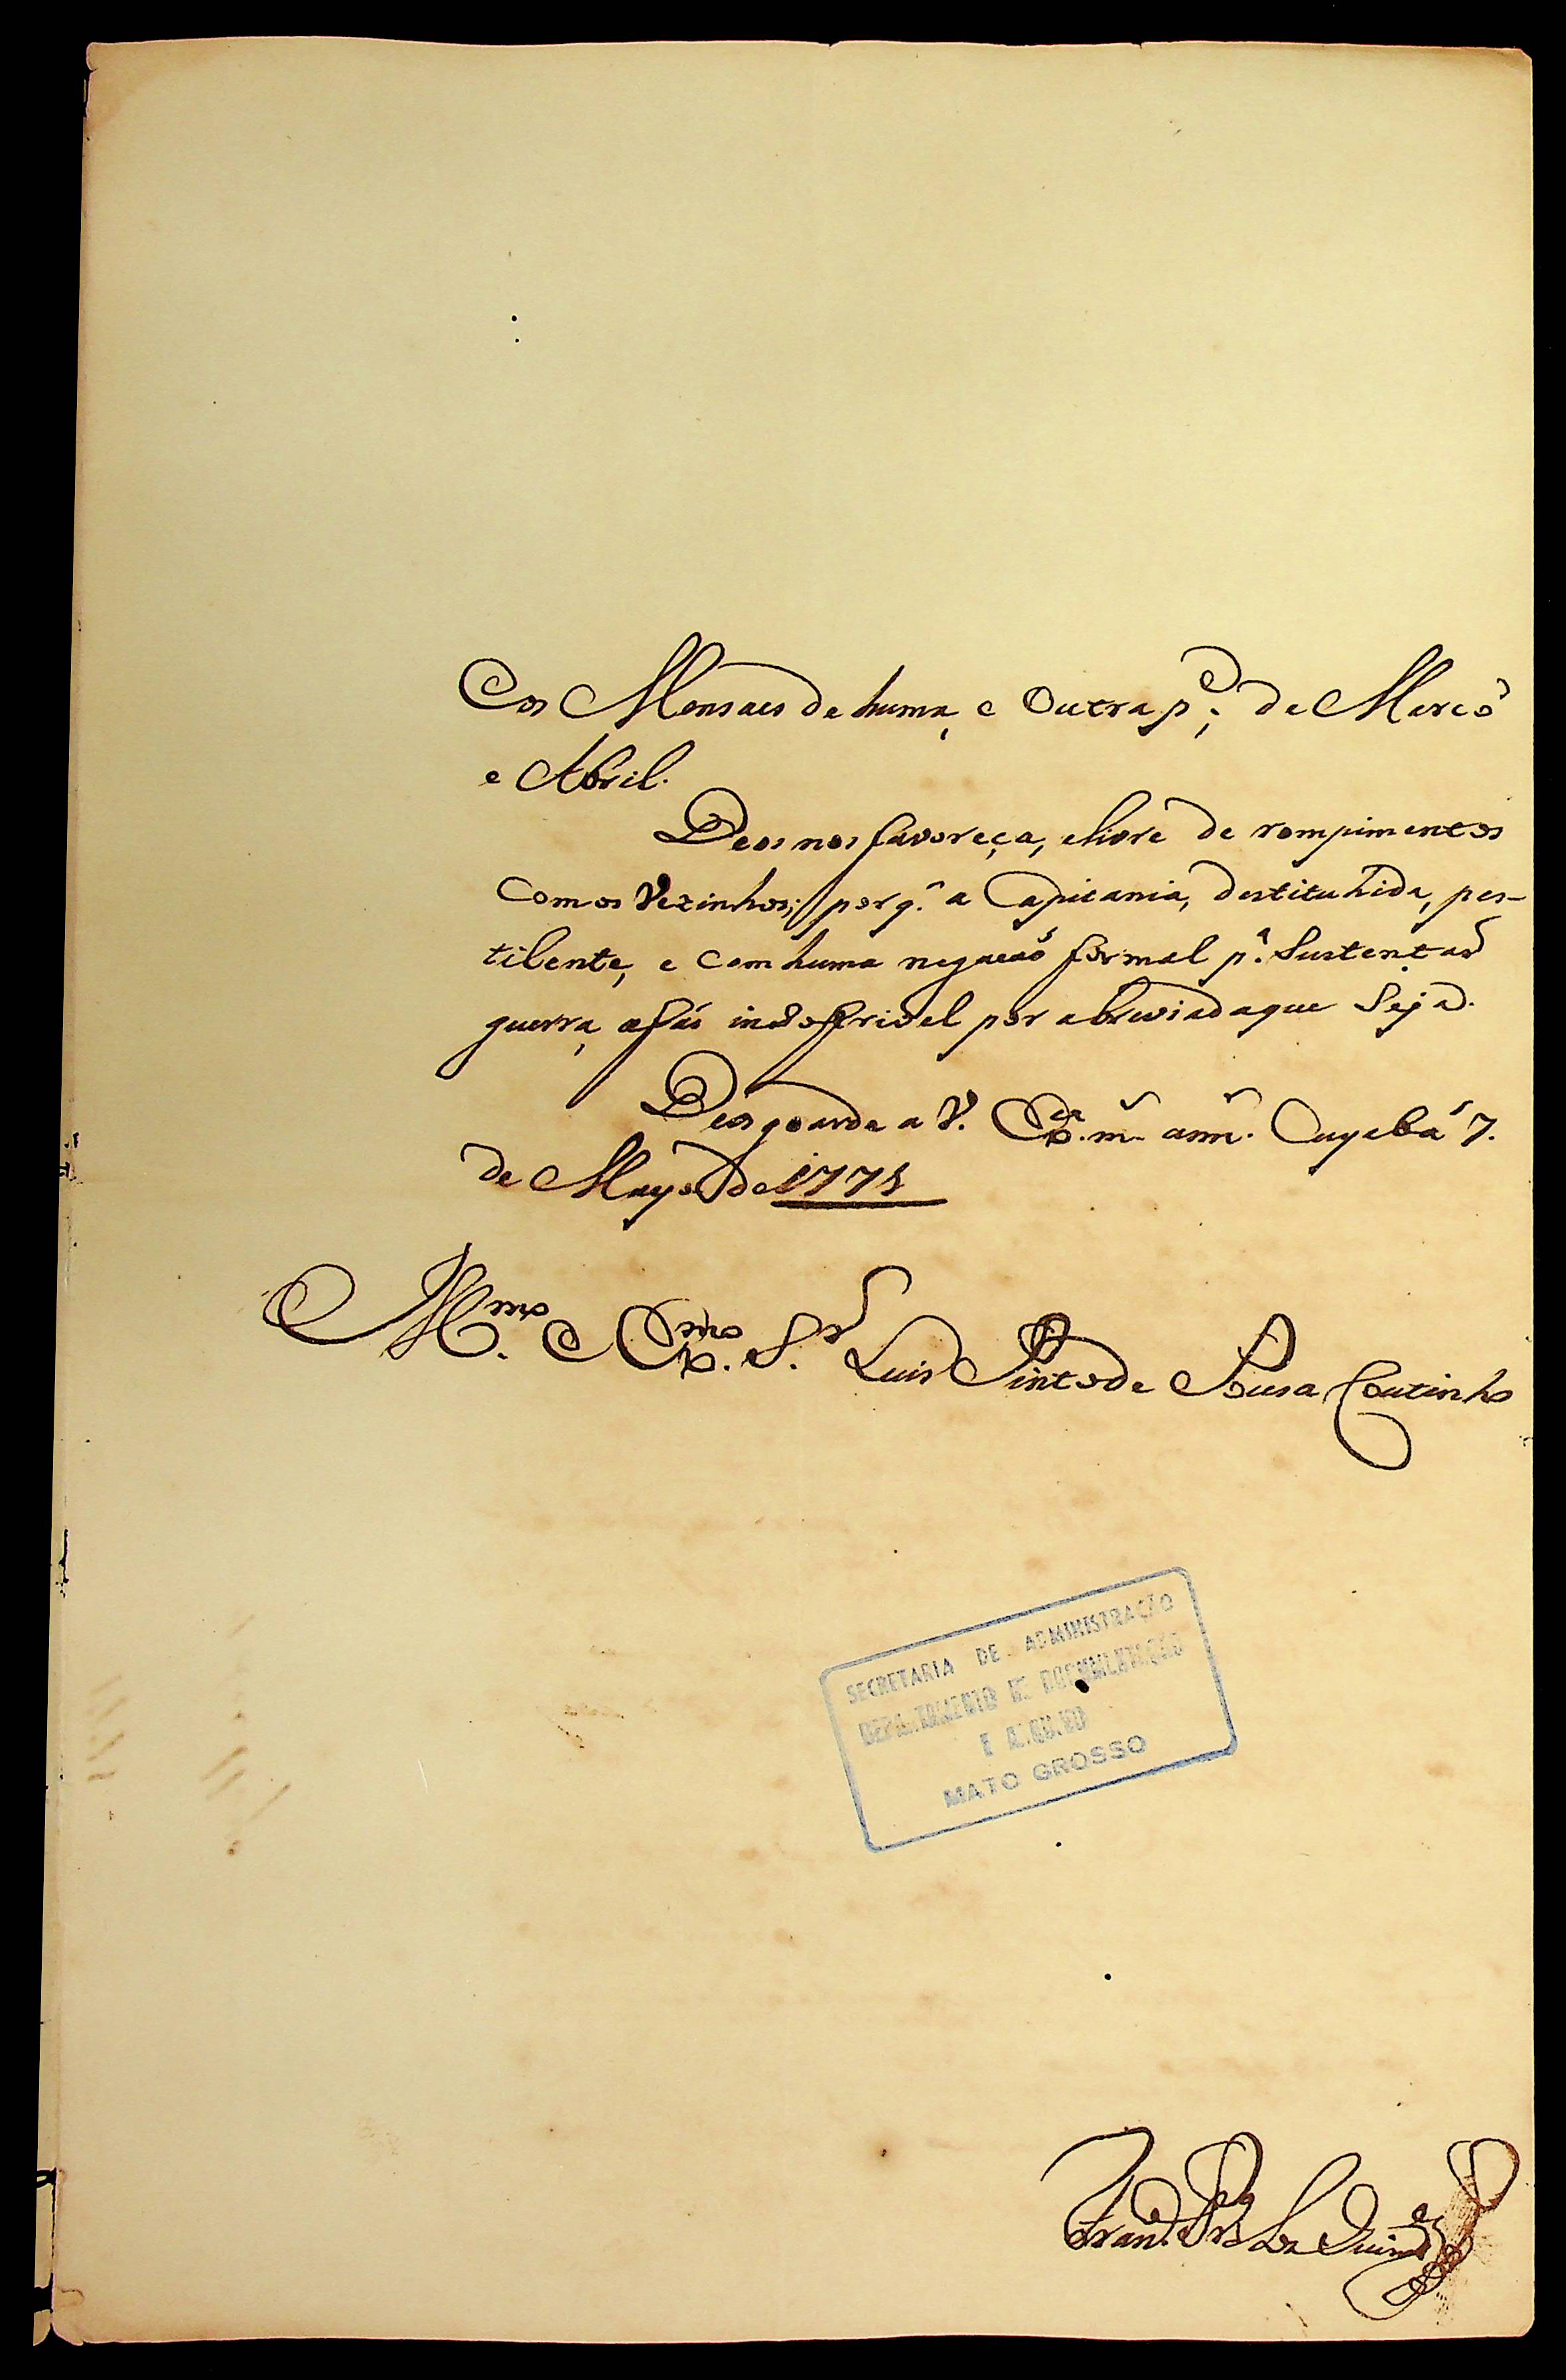 Eos Mensaes de huma, e Outra p.e; de Março
e Abril.
Deos nos favoreça, e livre de rompimentos
Com os Vezinhos; porq.' a Capitania, destituhida, pes-
tilente, e com huma negacaõ formal p.a Sustentar
guerra, a fás insofrivel por abreviada que Seja.
Deos goarde a V. Ex.a m.s ann.s Cuyabá 7.
de Mayo de 1771
Ill.mo e Ex.mo S.r Luis Pinto de Sousa Coutinho
SECRETARIA DE ADMINISTRAÇÃO
DEPARTAMENTO DE DOCUMENTAÇÃO
E ARQUIVO
MATO GROSSO